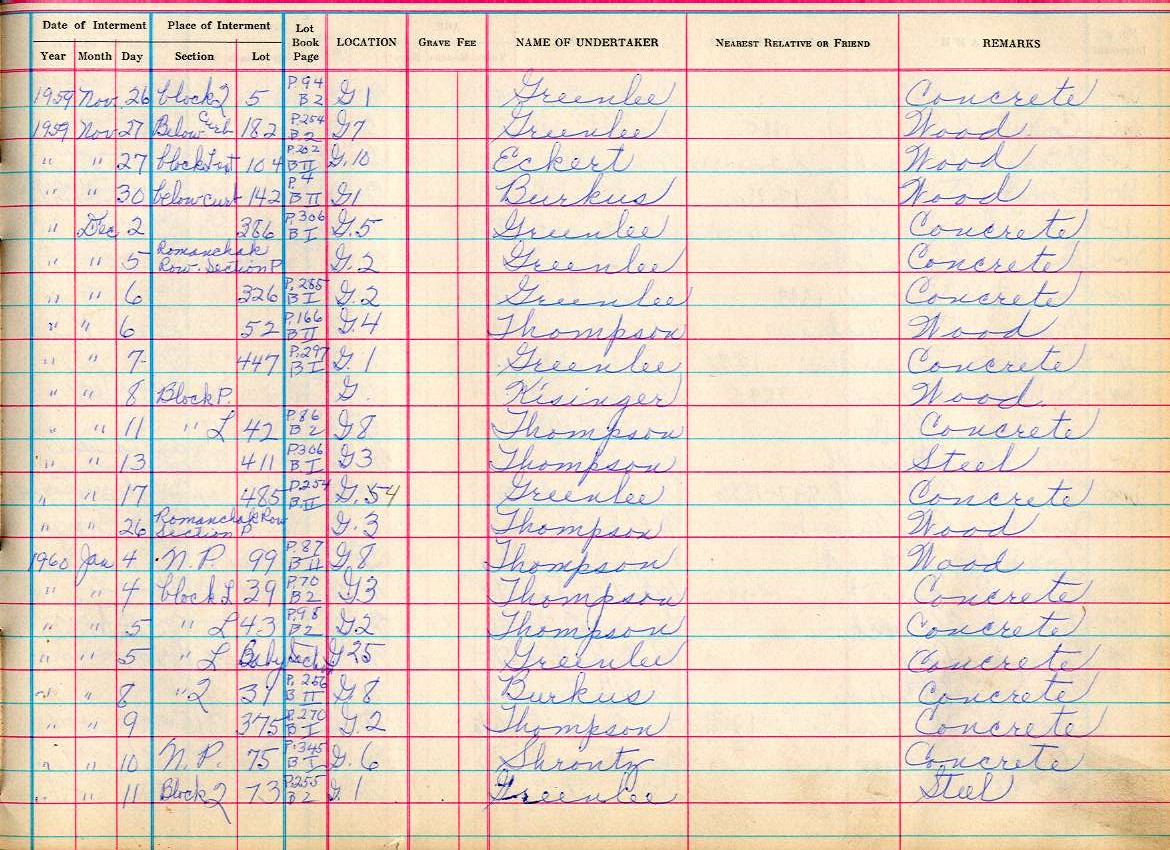 Date of Interment Place of Interment Lot Book Page LOCATION GRAVE FEE NAME OF UNDERTAKER NEAREST RELATIVE OR FRIEND REMARKS
Year Month Day Section Lot
1959 Nov. 26 block 2 5 P.94 B 2 G 1 Greenlee Concrete
1959 Nov 27 Below Curb 182 P.254 B.2 G7 Greenlee Wood
" " 27 block 104 P.202 B II G.10 Eckert Wood
" " 30 below curb 142 P.4 B II G1 Burkus Wood
" Dec 2 386 P.306 B I G.5 Greenlee Concrete
" " 5 Romanchak Row. Section P G.2 Greenlee Concrete
" " 6 326 P.285 B I G.2 Greenlee Concrete
" " 6 52 P.166 B II G.4 Thompson Wood
" " 7 447 P.297 B I G.1 Greenlee Concrete
" " 8 Block P. G. Kisinger Wood
" " 11 " L 42 P.86 B 2 G8 Thompson Concrete
" " 13 411 P306 B I G3 Thompson Steel
" " 17 485 P.254 B.II G.54 Greenlee Concrete
" " 26 Romanchak Row Section P G.3 Thompson Wood
1960 Jan 4 N.P. 99 P.87 B II G.8 Thompson Wood
" " 4 block L 39 P.70 B 2 G3 Thompson Concrete
" " 5 " L 43 P.98 B2 G2 Thompson Concrete
" " 5 " L Baby G25 Greenlee Concrete
" " 8 " 2 31 P.256 B II G8 Burkus Concrete
" " 9 375 P.270 B I G.2 Thompson Concrete
" " 10 N.P. 75 P.345 B I G.6 Shrontz Concrete
" " 11 Block 2 73 P.255 B 2 G.1 Greenlee Steel